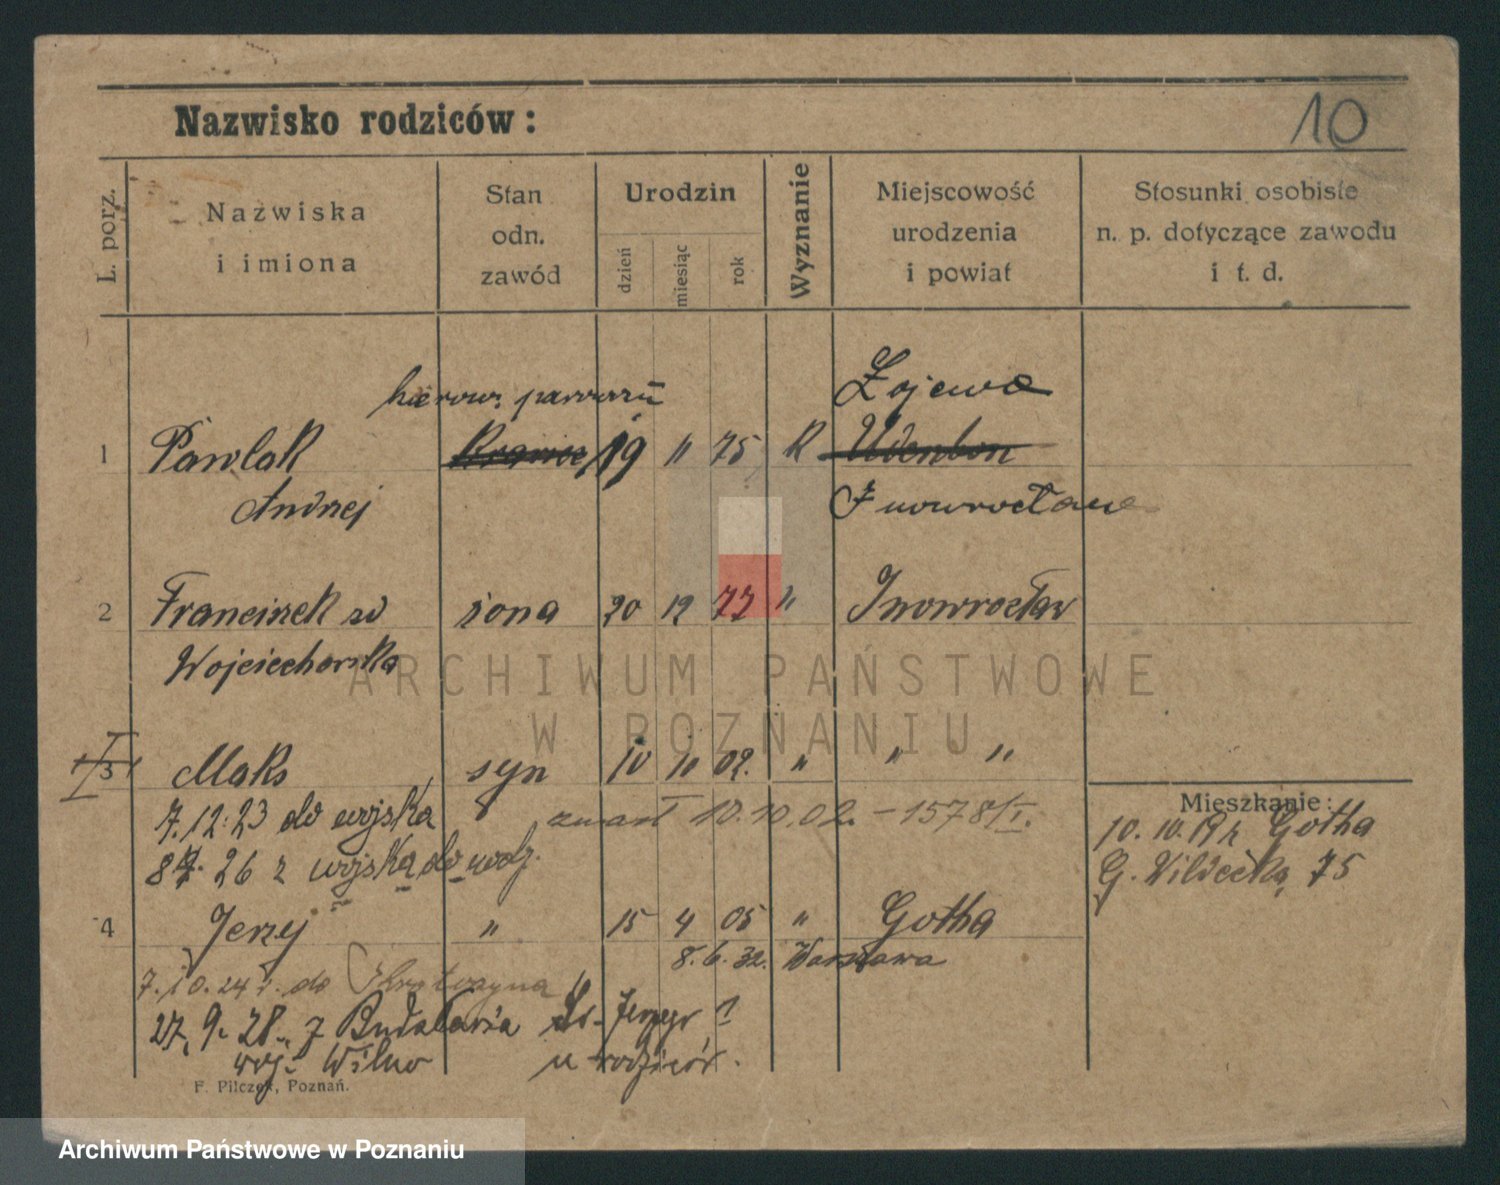 Nazwisko rodziców:
10
L. porz.
Nazwiska
i imiona
Stan
odn.
zawód
Urodzin
dzień
miesiąc
rok
Wyznanie
Miejscowość
urodzenia
i powiat
Stosunki osobiste
n. p. dotyczące zawodu
i t. d.
1 Pawlak 19 11 75 K
Andrzej
2 Franciszka żona 20 12 77 " Inowrocław
Wojciechowska
3 Maks syn 10 10 02. " " "
7.12.23 do wojska 10.10.02. - 1578/I.
26 z wojska do rodz.
Mieszkanie:
10. 10. 19 r Gotha
G. Wildecka 75
4 Jerzy " 15 4 05 " Gotha
8. 6. 32. Warszawa
7.10.24 r. do
27. 9. 28. z św. Jerzego 1
woj. Wilno u rodziców.
F. Pilczek, Poznań.
ARCHIWUM PAŃSTWOWE
W POZNANIU
Archiwum Państwowe w Poznaniu